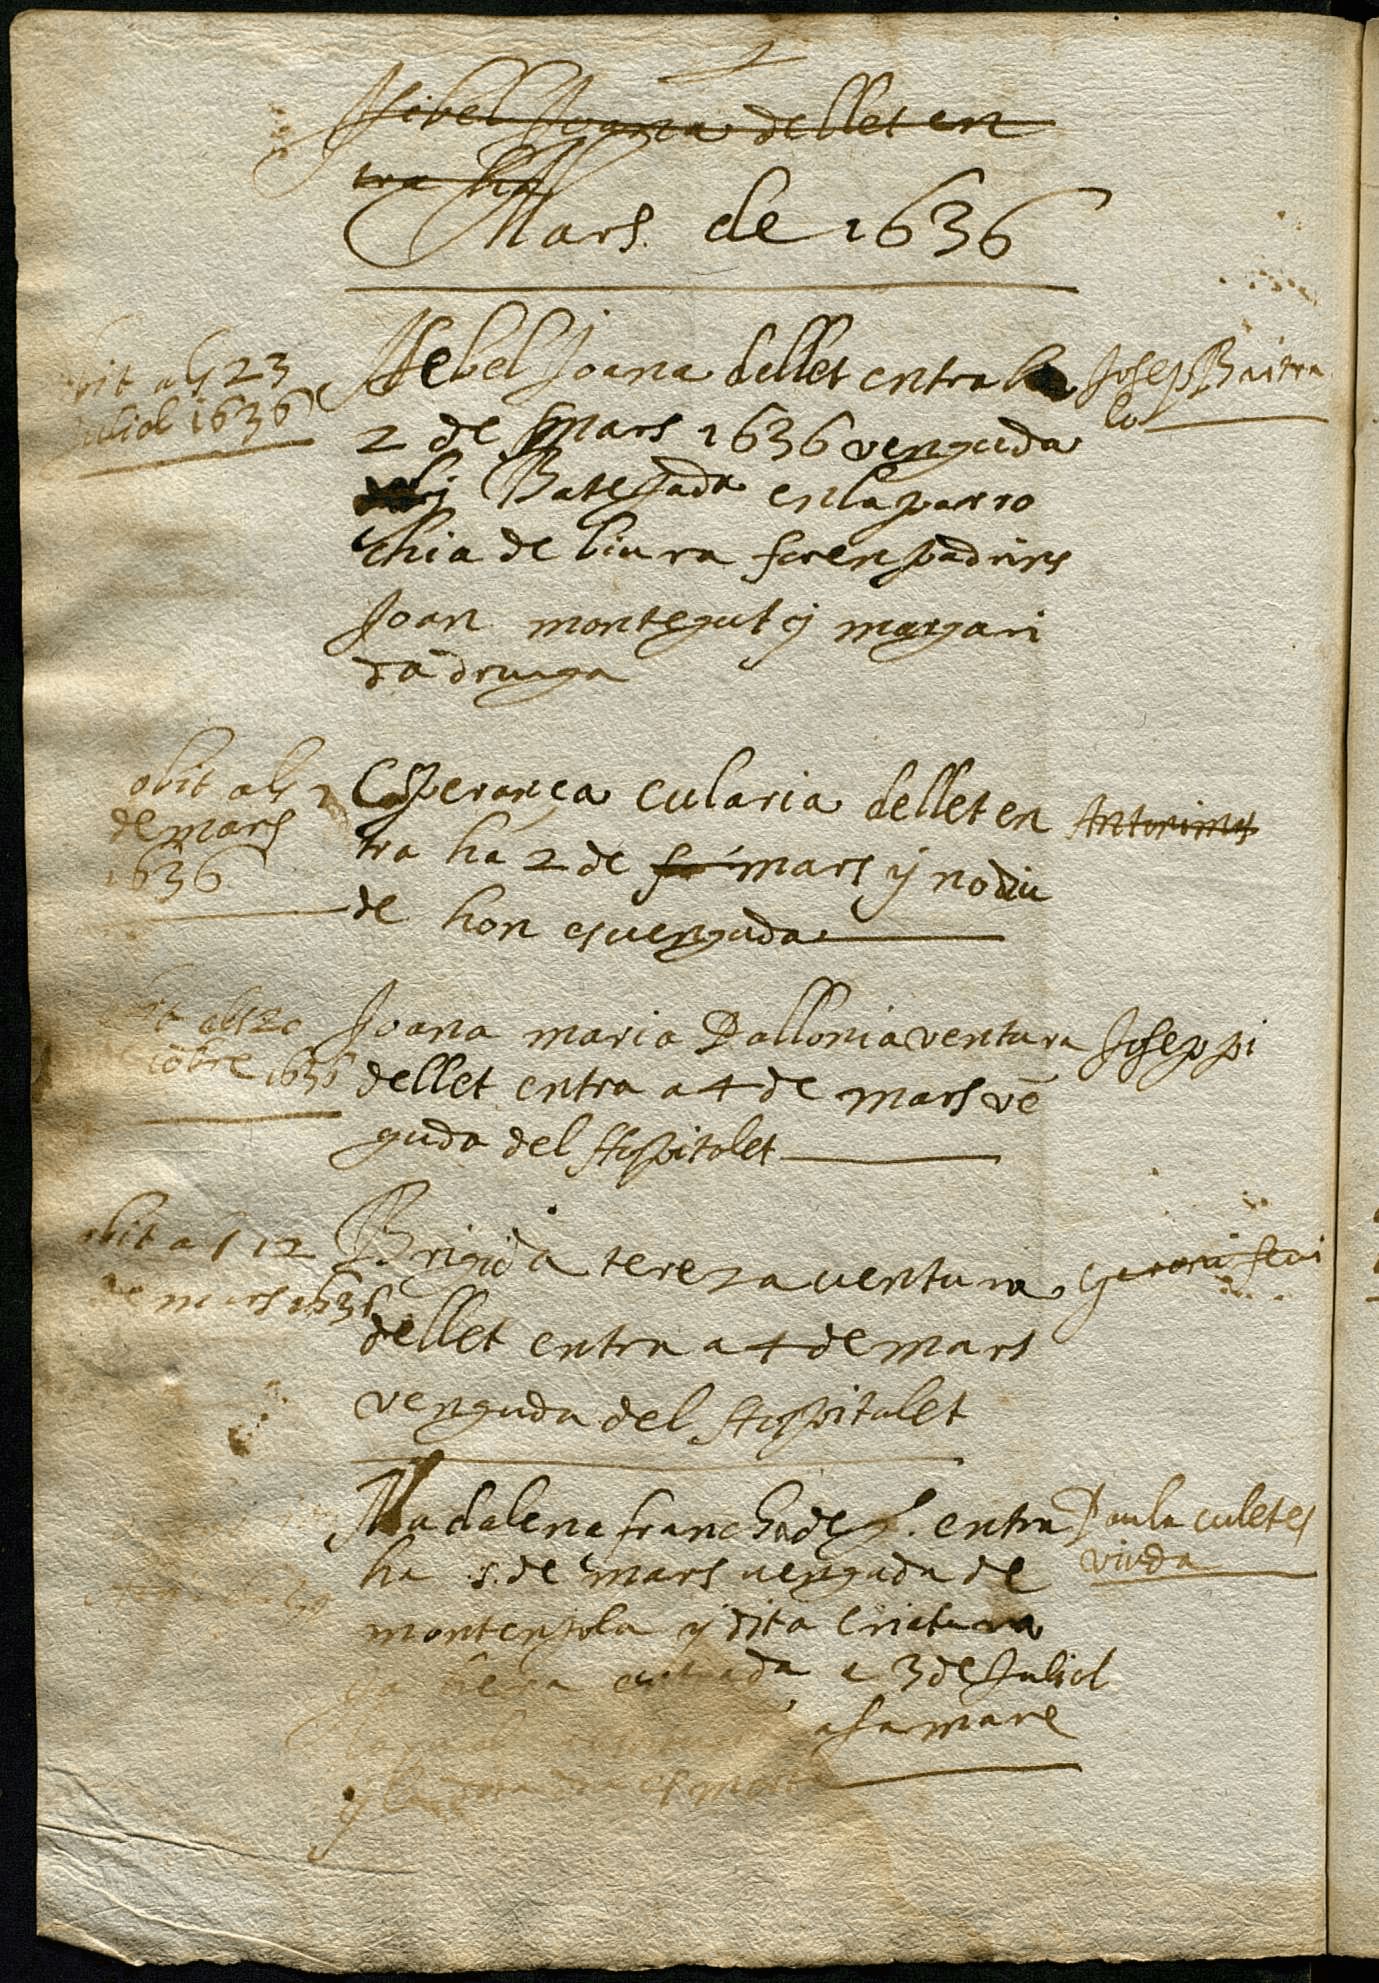 Isibel Joana dellet en
tra ha
Mars de 1636
obit als 23
Juliol 1636
Isebel Joana dellet entra ha
2 de mars 1636 venguda
Batejada en la parro
chia de liura foren padrins
Joan montegut y margari
da druga
Josep Baitra
lo
obit als 2
de mars
1636
Esperança eularia dellet en
tra ha 2 de fe mars y no diu
de hon es uenguda
Antoni mas
obit als 20
octobre 1636
Joana maria Pallonia ventura
dellet entra a 4 de mars vē
guda del Hospitalet
Josep pi
obit als 12
de mars 1636
Brigida tereza uentura
dellet entra a 4 de mars
venguda del Hospitalet
Madalena francha de ll. entra
ha 5 de mars uenguda de
montenjola y dita criatura
a 3 de Juliol
a sa mare
y la es morta
Paula culetes
viuda